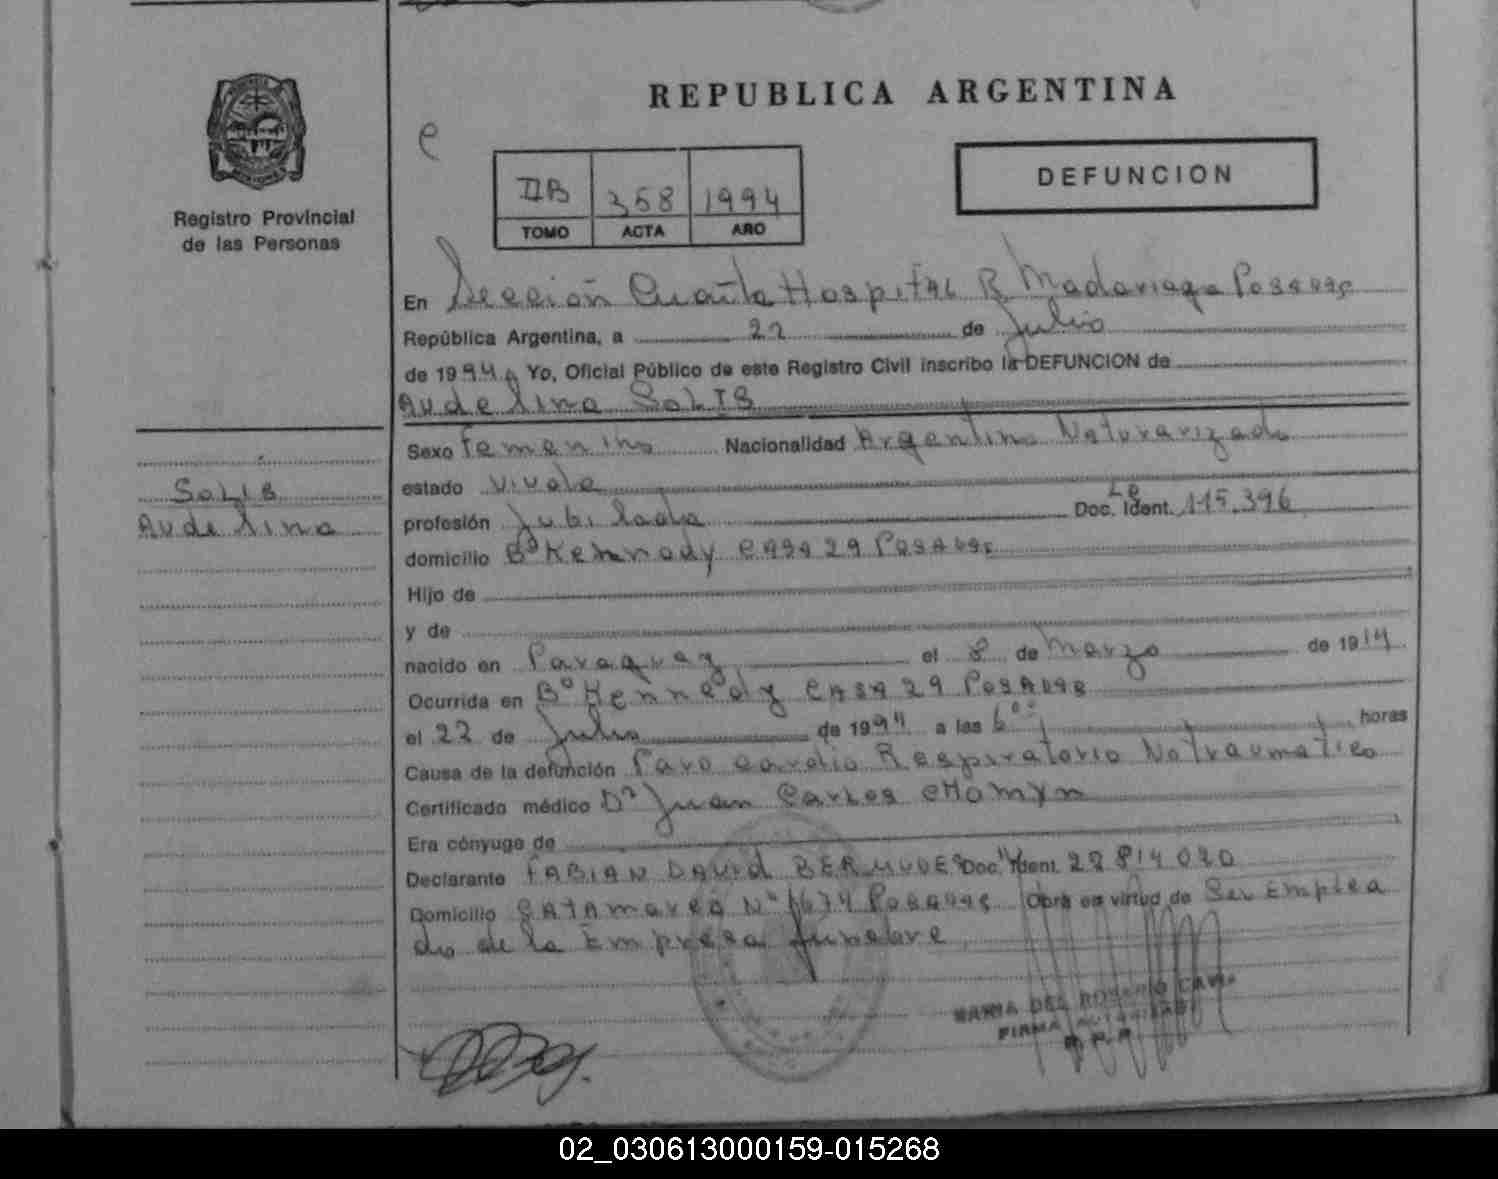 REPUBLICA ARGENTINA
e
IIB 358 1994
TOMO ACTA AÑO
DEFUNCION
Registro Provincial
de las Personas
SOLIS
Audelina
En Sección Cuarta Hospital R Madariaga Posadas
República Argentina, a 22 de Julio
de 1994. Yo, Oficial Público de este Registro Civil inscribo la DEFUNCION de
Audelina SOLIS
Sexo Femenino Nacionalidad Argentino Naturarizado
estado viuda
profesión Jubilada Doc. Ident. LC 115.396
domicilio Bº Kennedy CASA 29 POSADAS
Hijo de
y de
nacido en Paraguay el 8 de Marzo de 1914
Ocurrida en Bº Kennedy CASA 29 POSADAS
el 22 de Julio de 1994 a las 6 horas
Causa de la defunción Paro cardio Respiratorio No traumatico
Certificado médico Dr Juan Carlos
Era cónyuge de
Declarante FABIAN DAVID BERMUDES Doc. Ident. 22 814 020
Domicilio CATAMARCA Nº 1674 Posadas Obra en virtud de Ser Emplea
do de la Empresa funebre
MARIA DEL ROSARIO
FIRMA AUTORIZADA
R.P.P.
02_030613000159-015268